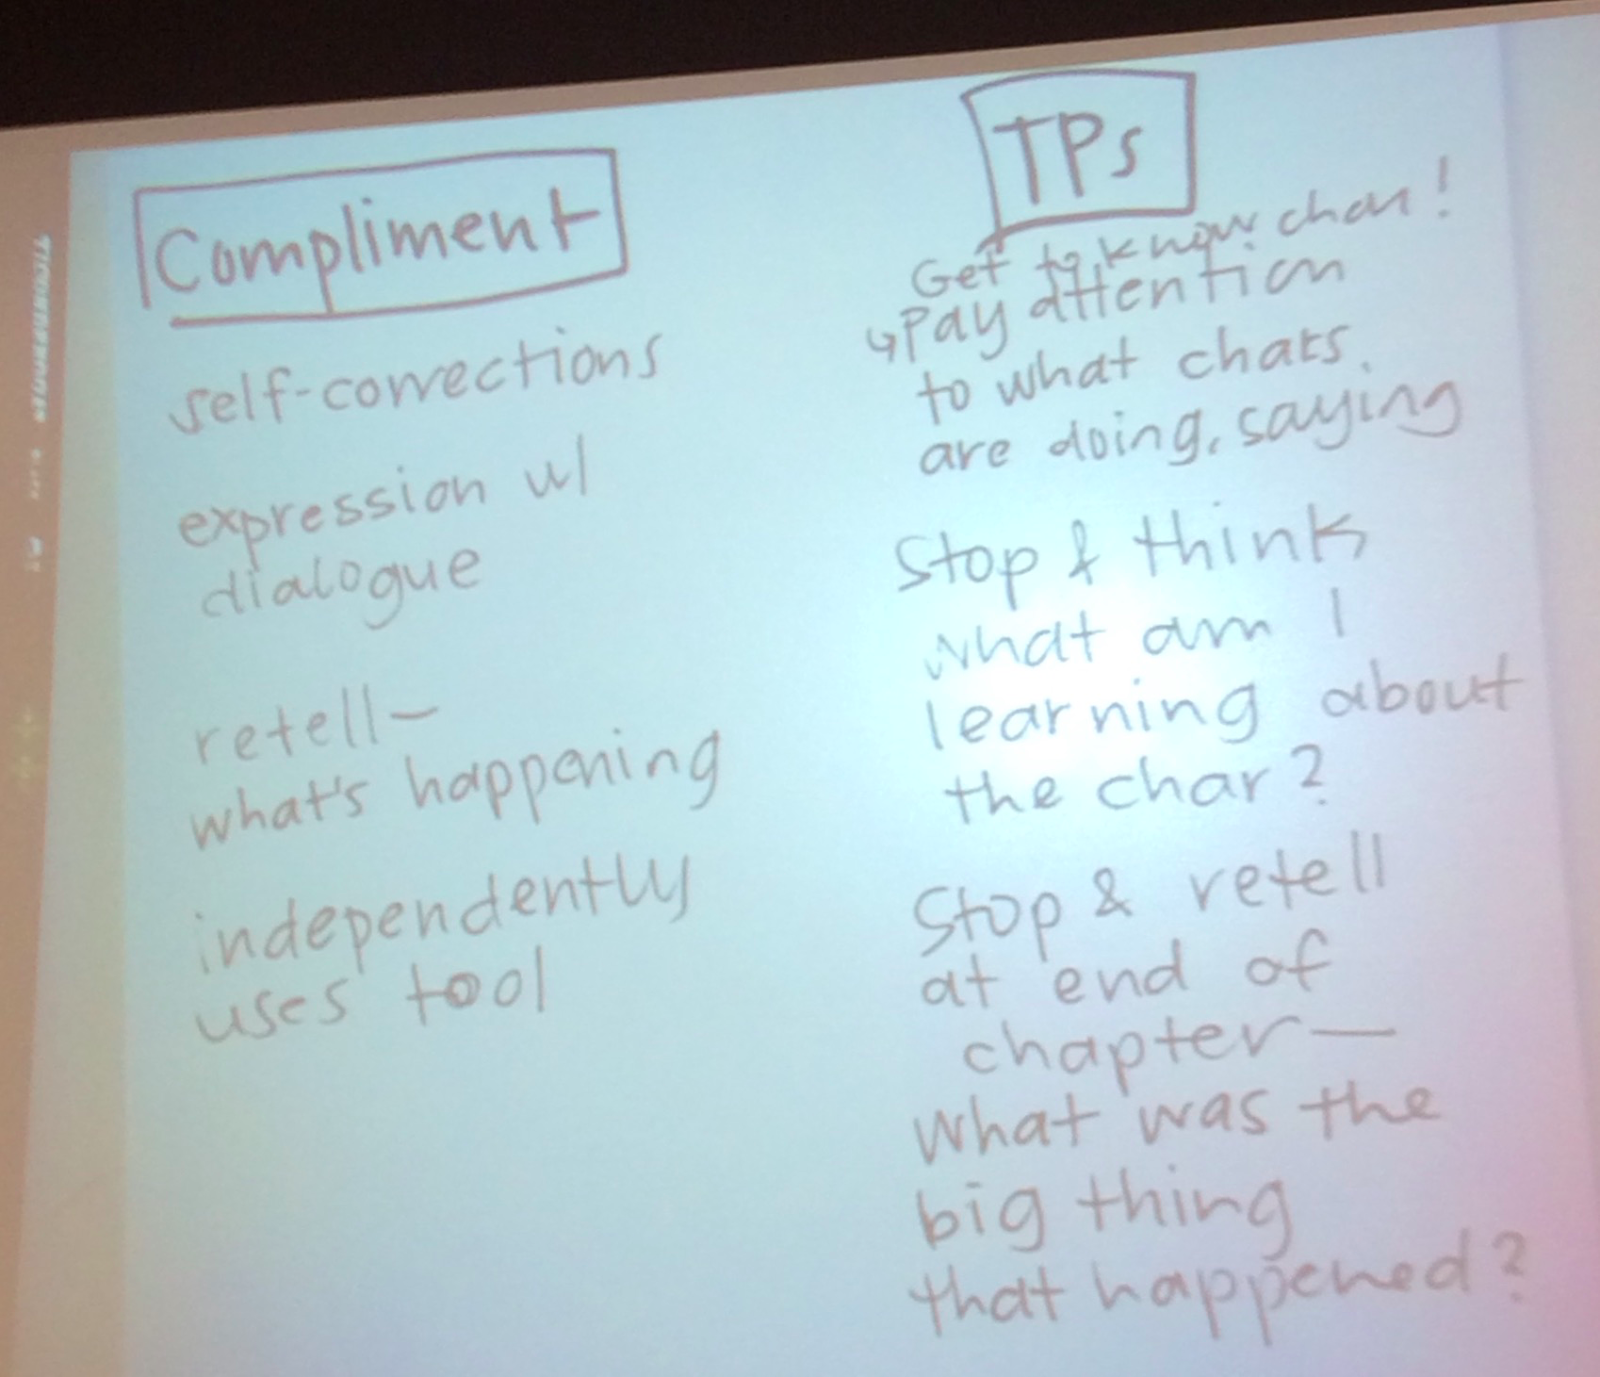 Compliment
self-corrections
expression w/
dialogue
retell—
what's happening
independently
uses tool
TPs
Get to know char!
↳Pay attention
to what chars.
are doing, saying
Stop & think
what am I
learning about
the char?
Stop & retell
at end of
chapter—
what was the
big thing
that happened?